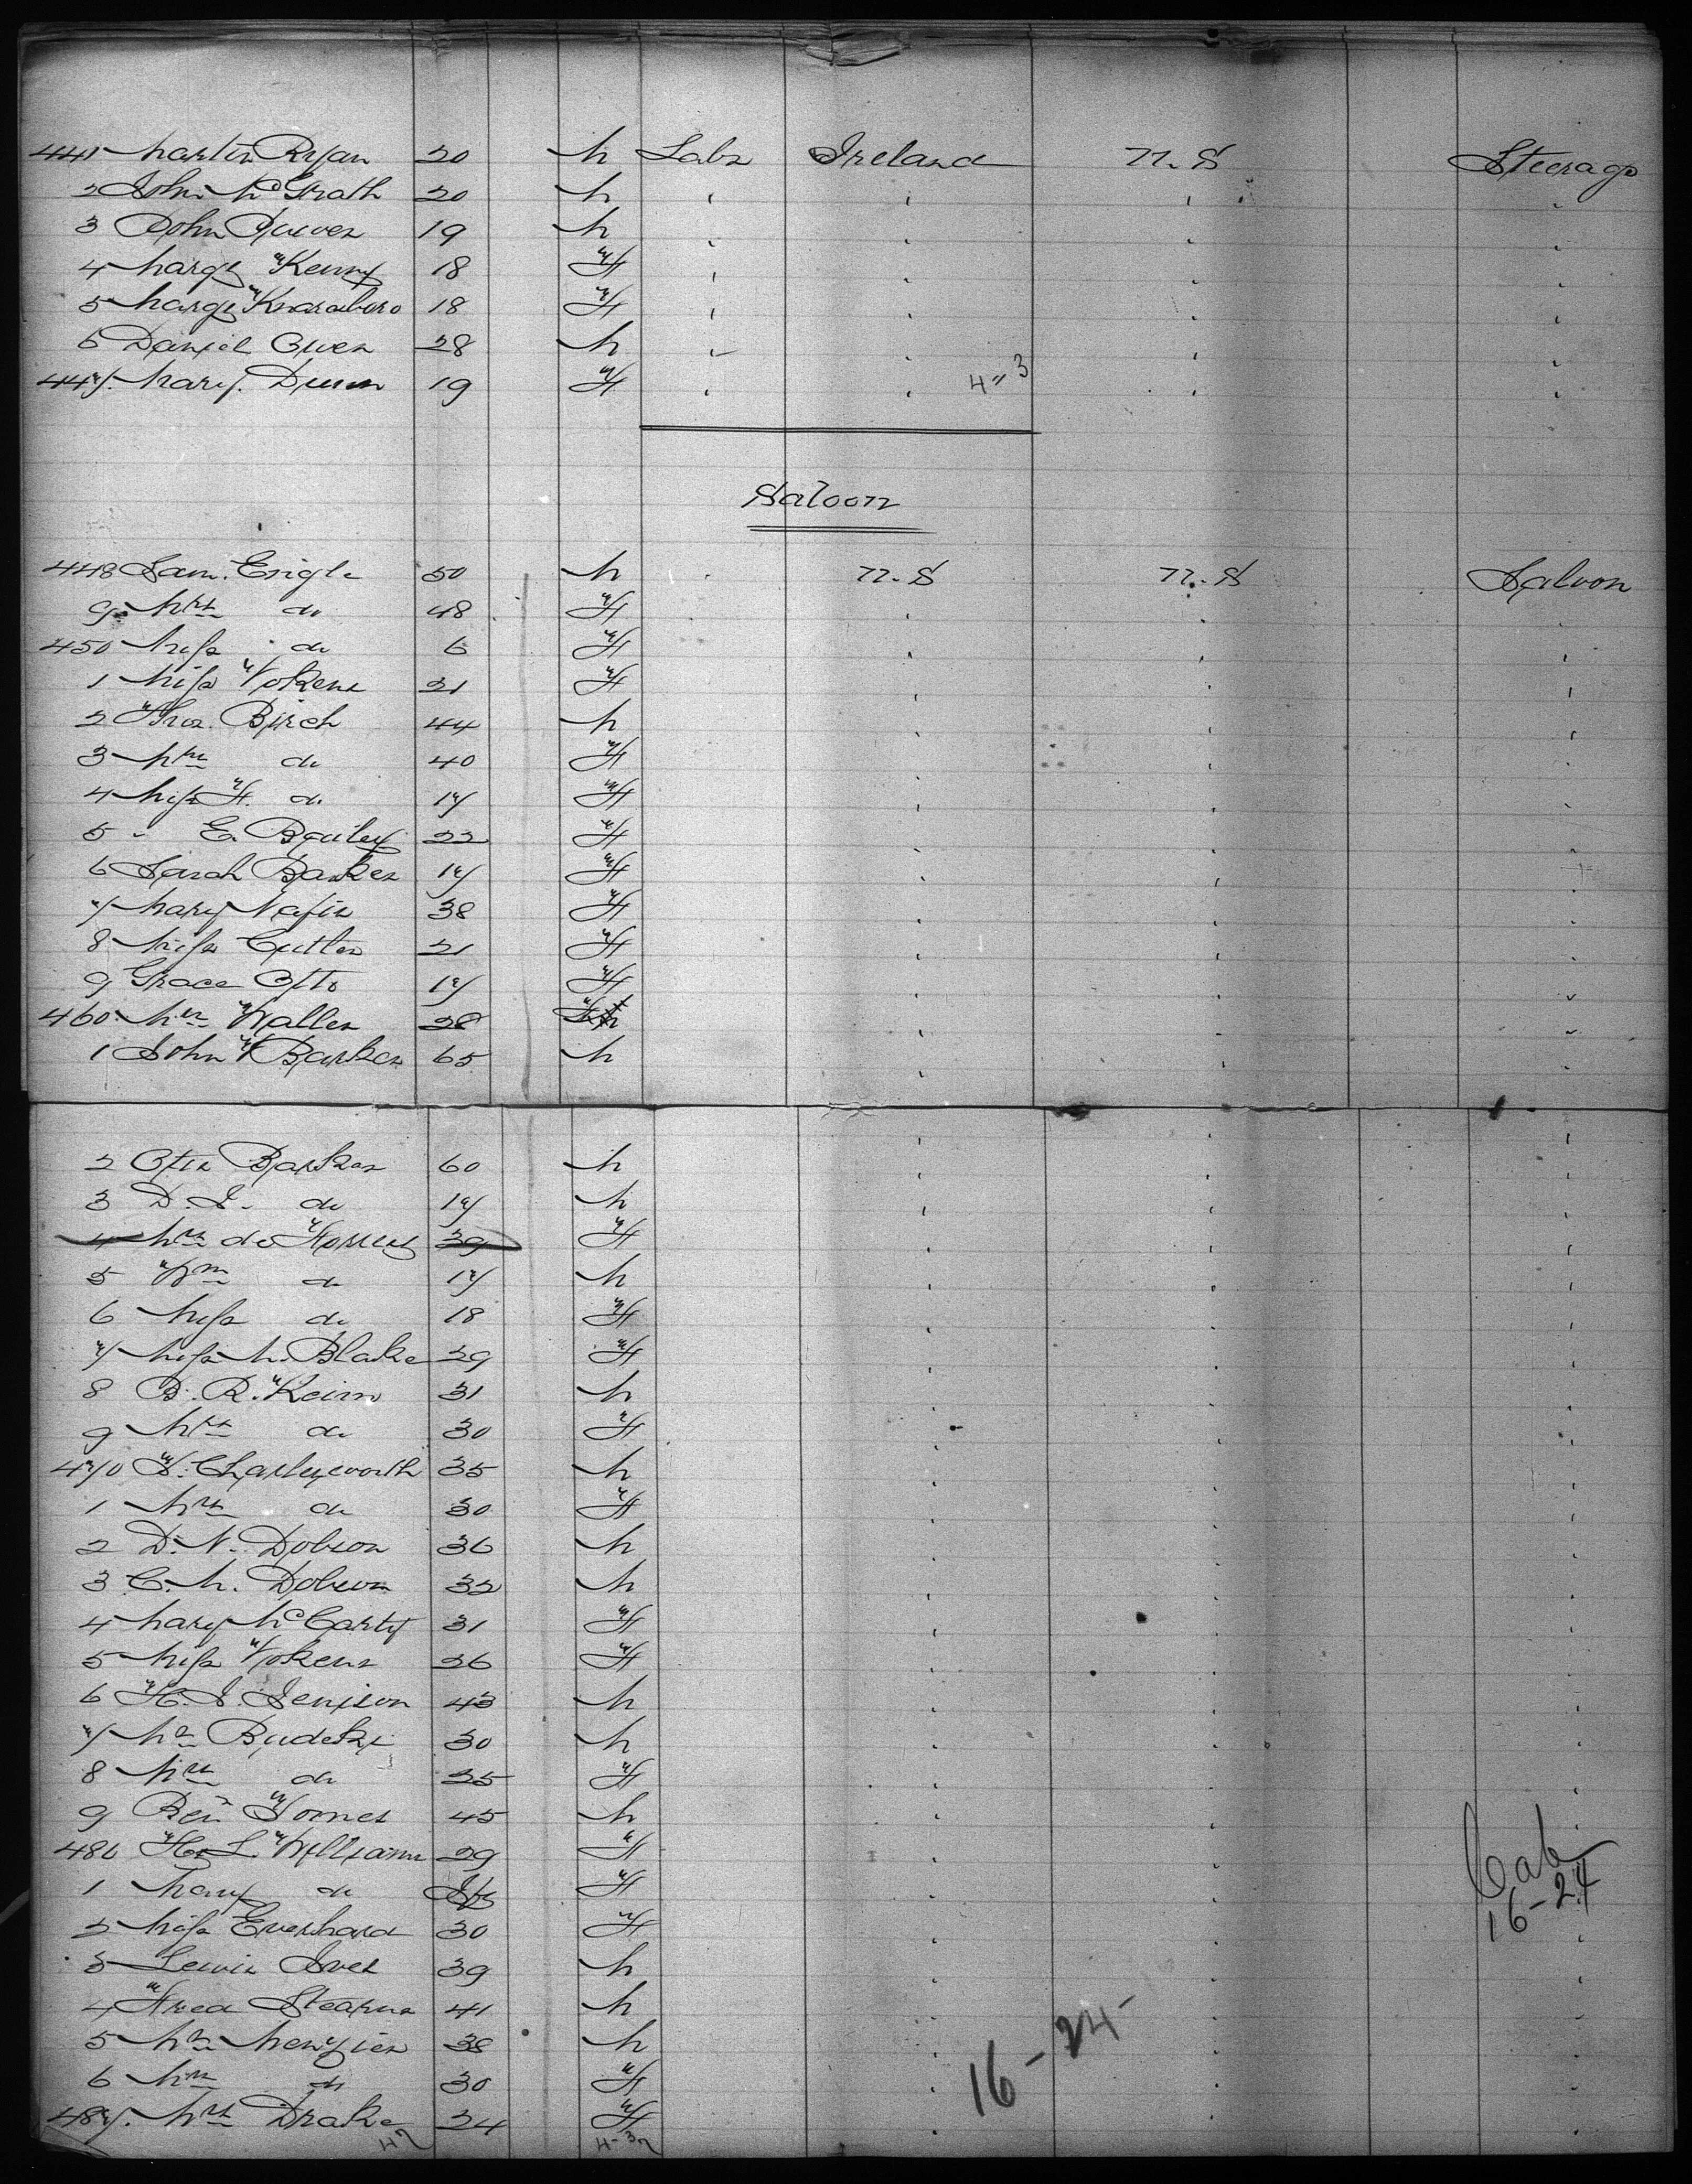 441 Martin Ryan 20 M Labr Ireland U.S Steerage
2 John McGrath 20 M " " " "
3 John 19 M " " " "
4 Margt Kenny 18 F " " " "
5 Margt 18 F " " " "
6 Daniel Owen 28 M " " " "
447. Mary. Dunn 19 F " " " "
4 " 3
Saloon
448 Sam. Engle 50 M U.S U.S Saloon
9 Mrs do 48 F " " "
450 Miss do 6 F " " "
1 Miss Vokens 21 F " " "
2 Thos. Birch 44 M " " "
3 Mrs do 40 F " " "
4 Miss F. do 17 F " " "
5 " E. Bailey 22 F " " "
6 Sarah Barker 17 F " " "
7 Mary 38 F " " "
8 Miss Cutter 21 F " " "
9 Grace Otto 17 F " " "
460 Waller 28 " " "
1 John Barker 65 M " " "
2 Otis Barker 60 M " " "
3 D. S. do 17 M " " "
4 Mrs de 39 F " " "
5 Wm do 17 M " " "
6 Miss do 18 F " " "
7 Miss M. Blake 29 F " " "
8 B. R. Keim 31 M " " "
9 Mrs do 30 F " " "
470 T. Charlesworth 35 M " " "
1 Mrs do 30 F " " "
2 D. N. Dobson 36 M " " "
3 C. M. Dobson 32 M " " "
4 Mary McCarty 31 F " " "
5 Miss Vokens 26 F " " "
6 H. S. Jenison 43 M " " "
7 Mr 30 M " " "
8 Mrs do 25 F " " "
9 Ben Tomes 45 M " " "
480 H. L. Williams 29 F " " "
1 do F " " "
Cab
16-24
2 Miss Everhard 30 F " " "
3 Lewis Ives 39 M " " "
4 Fred Stearns 41 M " " "
5 Mr Menzies 38 M " " "
6 Mrs do 30 F " " "
16-24-
487. Mrs Drake 24 F " " "
47